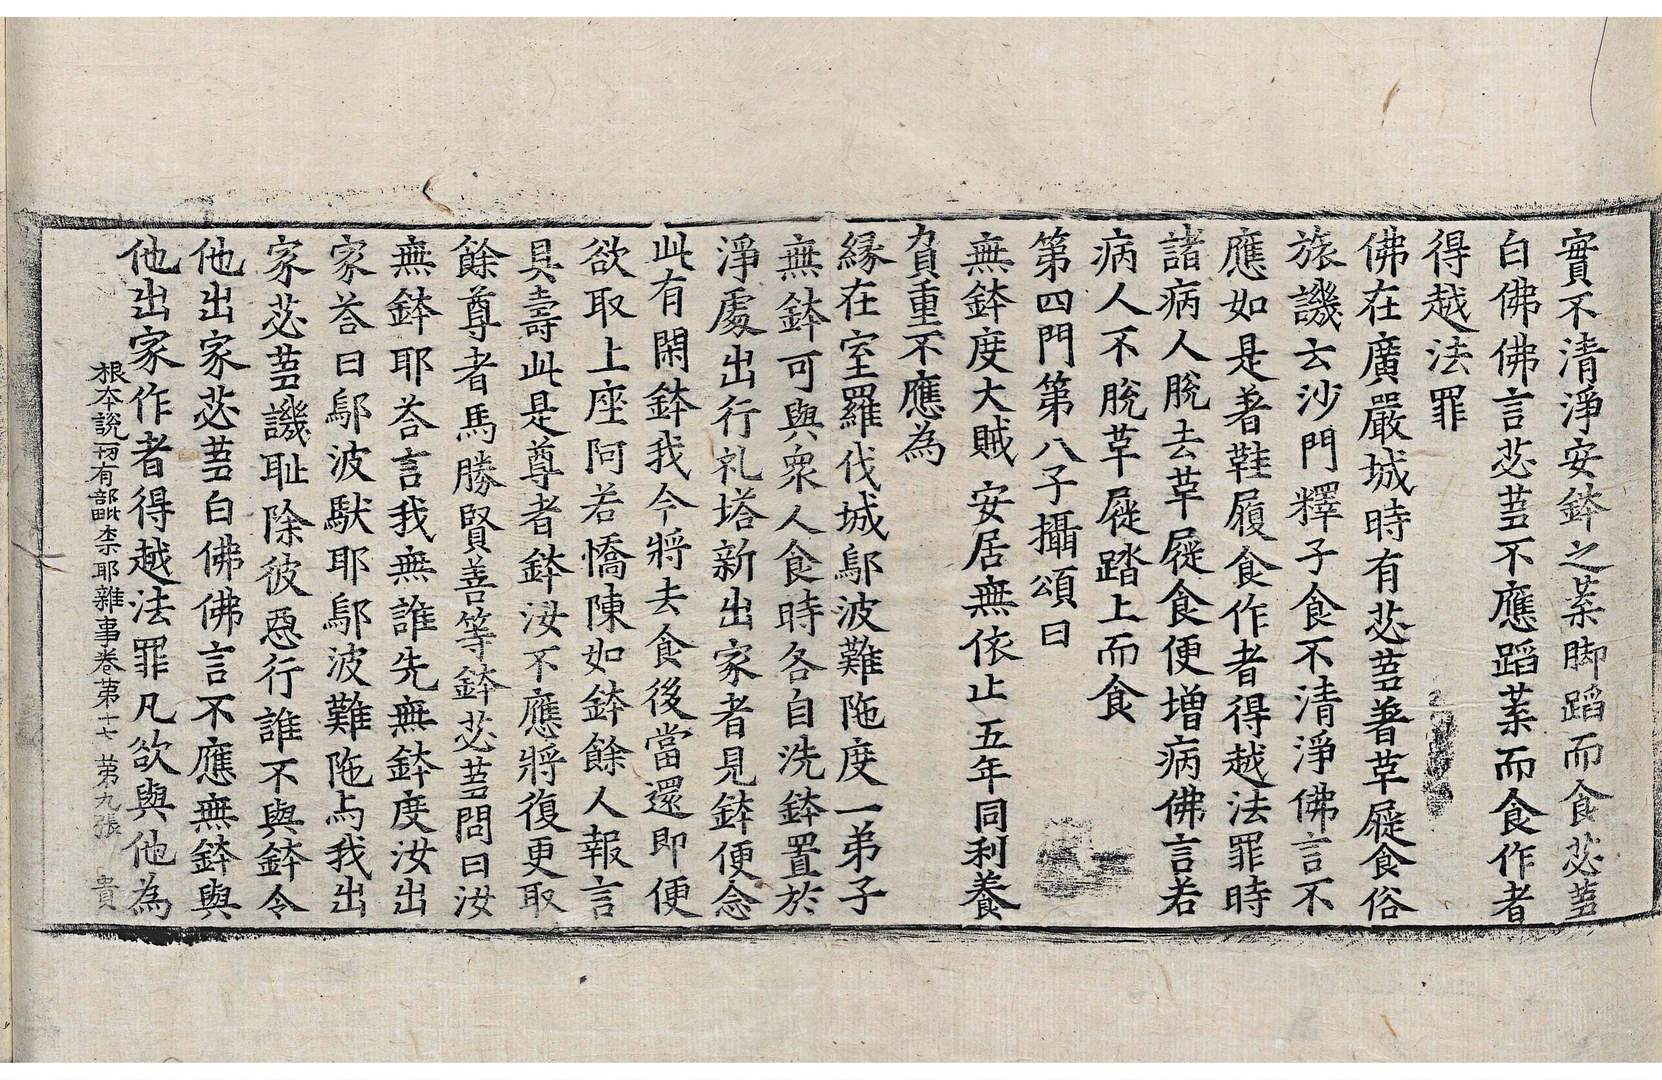 實不清淨安鉢之葉脚蹈而食苾蒭
白佛佛言苾蒭不應蹈葉而食作者
得越法罪
佛在廣嚴城時有苾蒭著草屣食俗
旅譏云沙門釋子食不清淨佛言不
應如是著鞋履食作者得越法罪時
諸病人脫去草屣食便增病佛言若
病人不脫草屣踏上而食
第四門第八子攝頌曰
無鉢度大賊 安居無依止 五年同利養
負重不應為
縁在室羅伐城鄔波難陁度一弟子
無鉢可與衆人食時各自洗鉢置於
淨處出行礼塔新出家者見鉢便念
此有閑鉢我今將去食後當還即便
欲取上座阿若憍陳如鉢餘人報言
具壽此是尊者鉢汝不應將復更取
餘尊者馬勝賢善等鉢苾蒭問曰汝
無鉢耶荅言我無誰先無鉢度汝出
家荅曰鄔波馱耶鄔波難陁与我出
家苾蒭譏耻除彼惡行誰不與鉢令
他出家苾蒭白佛佛言不應無鉢與
他出家作者得越法罪凡欲與他為
根本說一切有部毗柰耶雜事卷第十七 第九張 貴